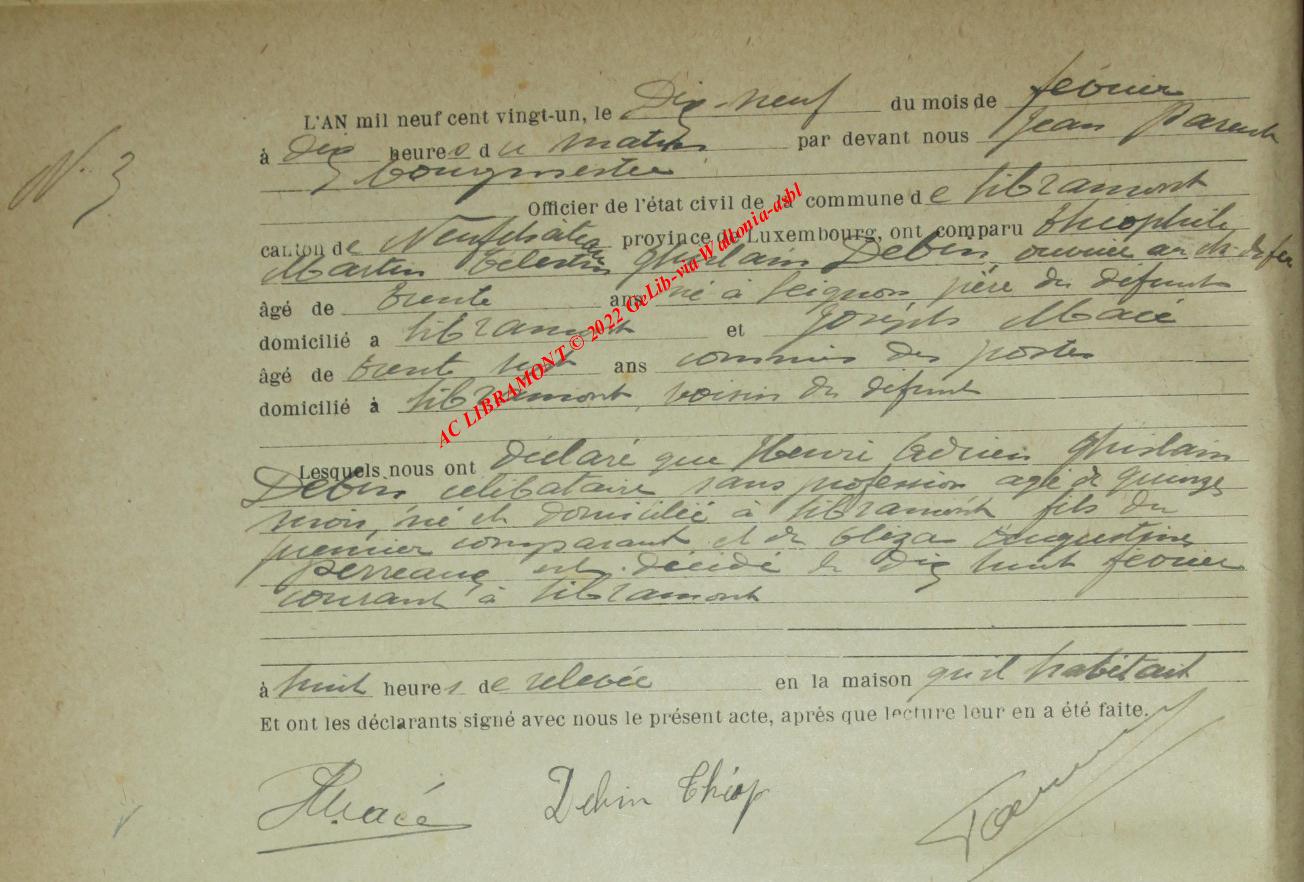 N. 3
L'AN mil neuf cent vingt-un, le Dix-neuf du mois de février
à dix heures du matin par devant nous Jean Parent
bourgmestre
Officier de l'état civil de la commune de Libramont
canton de Neufchâteau province de Luxembourg, ont comparu Théophile
Martin Célestin Ghislain Debin ouvrier au ch. de fer
âgé de trente ans né à Leignon père du défunt
domicilié a Libramont et Joseph Macé
âgé de trente ans commis des postes
domicilié à Libramont, voisin du défunt
Lesquels nous ont déclaré que Henri Adrien Ghislain
Debin célibataire sans profession agé de quinze
mois, né et domicilié à Libramont fils du
premier comparant et de Eliza Augustine
Perreaux est décédé le dix huit février
courant à Libramont
à huit heures de relevée en la maison qu'il habitait
Et ont les déclarants signé avec nous le présent acte, après que lecture leur en a été faite.
JMacé Debin Théop
AC LIBRAMONT © 2022 GeLib-via Wallonia-asbl